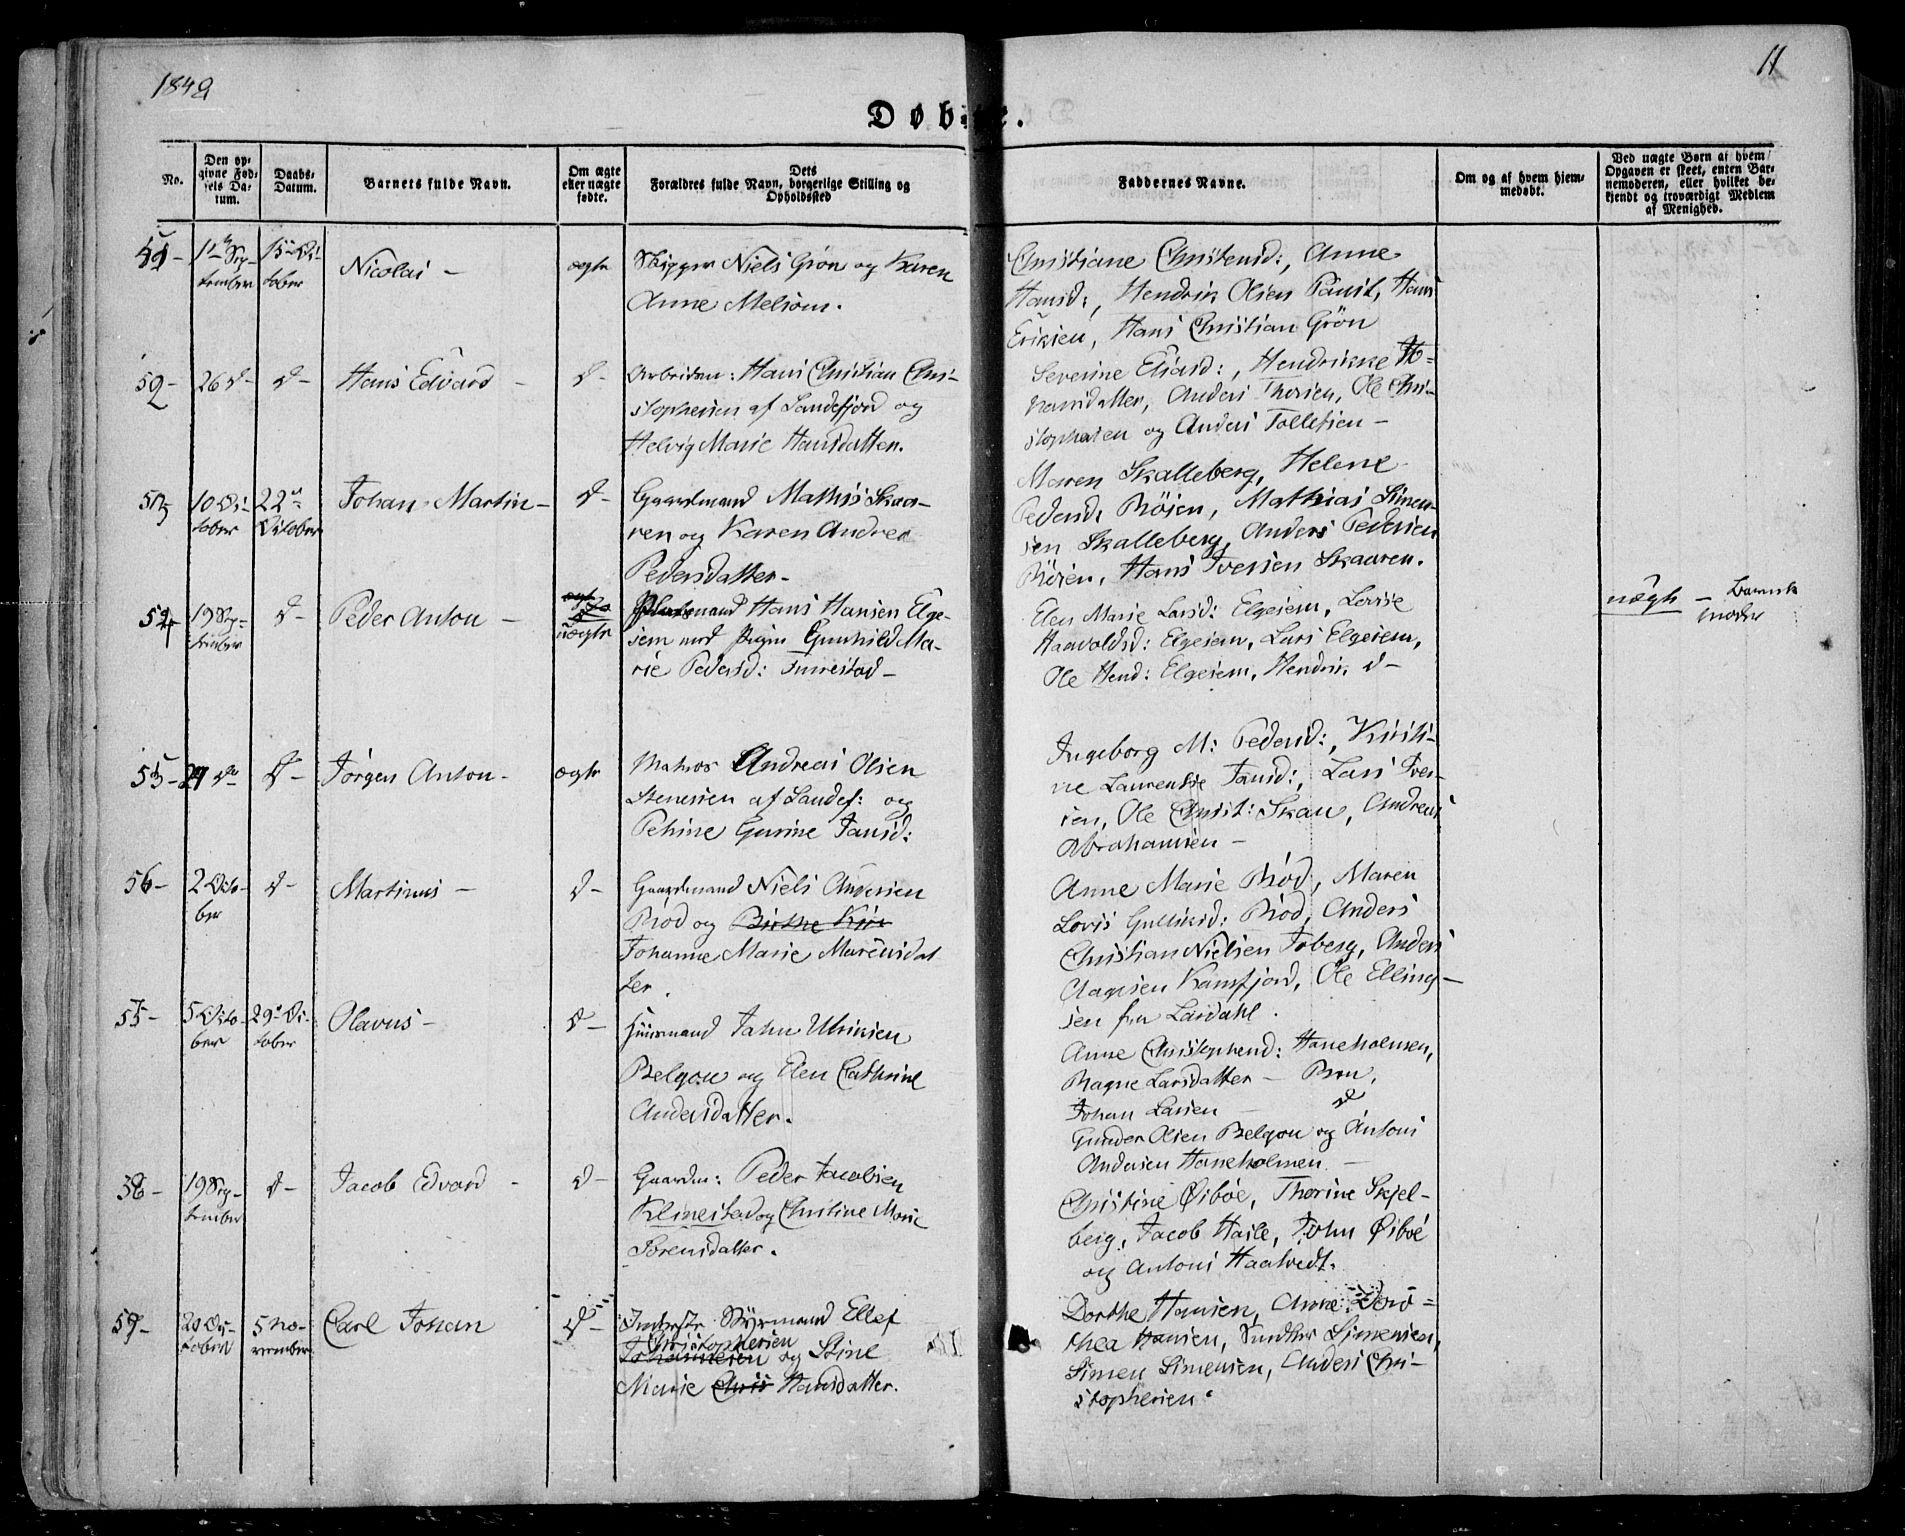 1842
11
Døbte.
No.
Den op-
givne Fød-
sels Da-
tum.
Daabs-
Datum.
Barnets fulde Navn.
Om ægte
eller uægte
fødte.
Dets
Forældres fulde Navn, borgerlige Stilling og
Opholdssted
Faddernes Navne.
Om og af hvem hjem-
medøbt.
Ved uægte Børn af hvem
Opgaven er skeet, enten Bar-
nemoderen, eller hvilket be-
kjendt og troværdigt Medlem
af Menighed.
51 - Sep-
tember
15 Oc-
tober
Nicolai -
ægte
Skipper Niels Grøn og Karen
Anne Melsom.
Christiane Christensd:, Anne
Hansd:, Hendrik Olsen, Hans
Eriksen, Hans Christian Grøn
52 - 26 d - d -
Hans Edvard -
d -
Arbeidsm: Hans Christian Chri-
stophersen af Sandefjord og
Helvig Marie Hansdatter.
Severine Eliasd:, Hendrikke
hansdatter, Anders Thorsen, Ole Chri-
stophersen og Anders Tollefsen -
53 10 Oc-
tober
22 October
Johan Martin -
d -
Gaardmand Mathis Skaa-
ren og Karen Andrea
Pedersdatter -
Maren Skalleberg, Helene
Pedersd: Röien, Mathias Simen-
sen Skalleberg, Anders Pedersen
Röien, Hans Iversen Skaaren.
54 - 19 Sep-
tember
d -
Peder Anton -
uægte
Hans Hansen Elge-
sem med Pigen Gunhild Ma-
rie Pedersd: Furestad -
Elen Marie Larsd: Elgesem, Lovise
Haavoldsd: Elgesem, Lars Elgesem,
Ole Hend: Elgesem, Hendrik d -
uægte - Barnets
moder
55 - 29 d d -
Jørgen Anton -
ægte
Matros Andreas Olsen
Stenersen af Sandef: og
Petrine Gurine Jansd:
Ingeborg M: Pedersd:, Kirsti-
ne Laurentse Jansd:, Lars Iver-
sen, Ole Christ: Skau, Andreas
Abrahamsen -
56 - 2 Octo-
ber
d -
Martinus -
d -
Gaardmand Niels Andersen
Röd og Birthe Kir
Johanne Marie Marensdat
ter.
Anne Marie Röd, Maren
Lovis Gulliksd: Röd, Anders
Christian Nielsen Foberg, Anders
Aagesen Kamfjord, Ole Elling-
sen fra Lardahl.
55 - 5 Octo-
ber
29 Oc-
tober
Olavus -
d -
Huusmand Jahn Ulriksen
Belgou og Elen Cathrine
Andersdatter.
Anne Christophersd: Haneholmen,
Ragne Larsdatter - Broe,
Johan Larsen - d
Gunder Olsen Belgou og Antoni
Andersen Haneholmen -
58 - 19 Sep-
tember
d -
Jacob Edvard -
d -
Gaardm: Peder Jacobsen
Klinestad og Christine Marie
Sörensdatter.
Christine Öiböe, Thorine Skjel-
berg, Jacob Hasle, John Öiböe
og Antoni Haatvedt.
59 - 20 Oc-
tober
5 No-
vember
Carl Johan
d -
Styrmand Ellef
Christophersen
Johannesen og Stine
Marie Chris Hansdatter.
Dorthe Hansen, Anne Doro-
thea Hansen, Simensen,
Simen Simensen, Anders Chri-
stophersen.